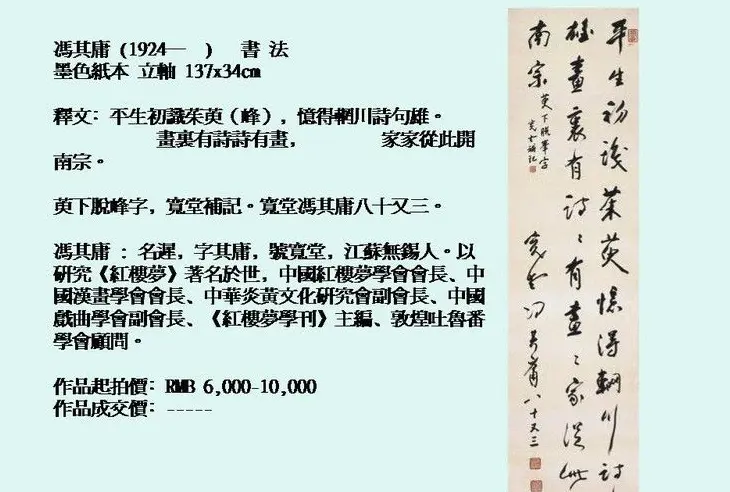 馮其庸 (1924—   )   書 法
墨色紙本 立軸 137x34cm
釋文: 平生初識茱萸（峰）, 憶得輞川詩句雄。
畫裏有詩詩有畫,   家家從此開
南宗。
萸下脫峰字, 寬堂補記。寬堂馮其庸八十又三。
馮其庸 : 名遲, 字其庸, 號寬堂, 江蘇無錫人。以
研究《紅樓夢》著名於世, 中國紅樓夢學會會長、中
國漢畫學會會長、中華炎黃文化研究會副會長、中國
戲曲學會副會長、《紅樓夢學刊》主編、敦煌吐魯番
學會顧問。
作品起拍價: RMB 6,000-10,000
作品成交價: -----
平生初識茱萸憶得輞川詩
雄畫裏有詩〻有畫〻家從此
南宗
萸下脫峯字
寬堂補記
寬堂馮其庸八十又三